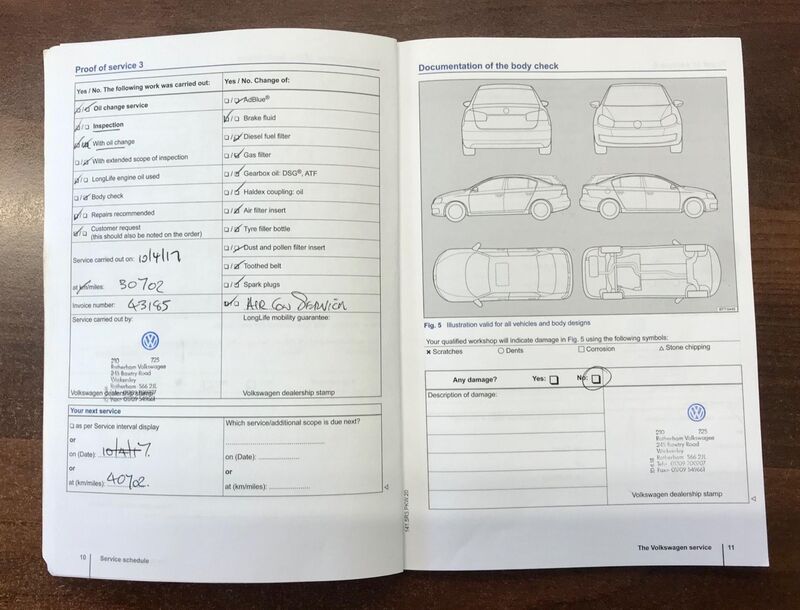 Proof of service 3
Yes / No. The following work was carried out:
Oil change service
Inspection
With oil change
With extended scope of inspection
LongLife engine oil used
Body check
Repairs recommended
Customer request
(this should also be noted on the order)
Service carried out on: 10/4/17
at km/miles: 30702
Invoice number: 43185
Service carried out by:
210 725
Rotherham Volkswagen
245 Bawtry Road
Wickersley
Rotherham S66 2JL
Volkswagen dealership stamp
Yes / No. Change of:
AdBlue®
Brake fluid
Diesel fuel filter
Gas filter
Gearbox oil: DSG®, ATF
Haldex coupling: oil
Air filter insert
Tyre filler bottle
Dust and pollen filter insert
Toothed belt
Spark plugs
AIR CON SERVICE
LongLife mobility guarantee:
Volkswagen dealership stamp
Your next service
as per Service interval display
or
on (Date): 10/4/17.
or
at (km/miles): 40702.
Which service/additional scope is due next?
on (Date):
or
at (km/miles):
10 Service schedule
Documentation of the body check
Fig. 5 Illustration valid for all vehicles and body designs
Your qualified workshop will indicate damage in Fig. 5 using the following symbols:
× Scratches ○ Dents □ Corrosion △ Stone chipping
Any damage? Yes: No:
Description of damage:
210 725
Rotherham Volkswagen
245 Bawtry Road
Wickersley
Rotherham S66 2JL
Volkswagen dealership stamp
The Volkswagen service 11